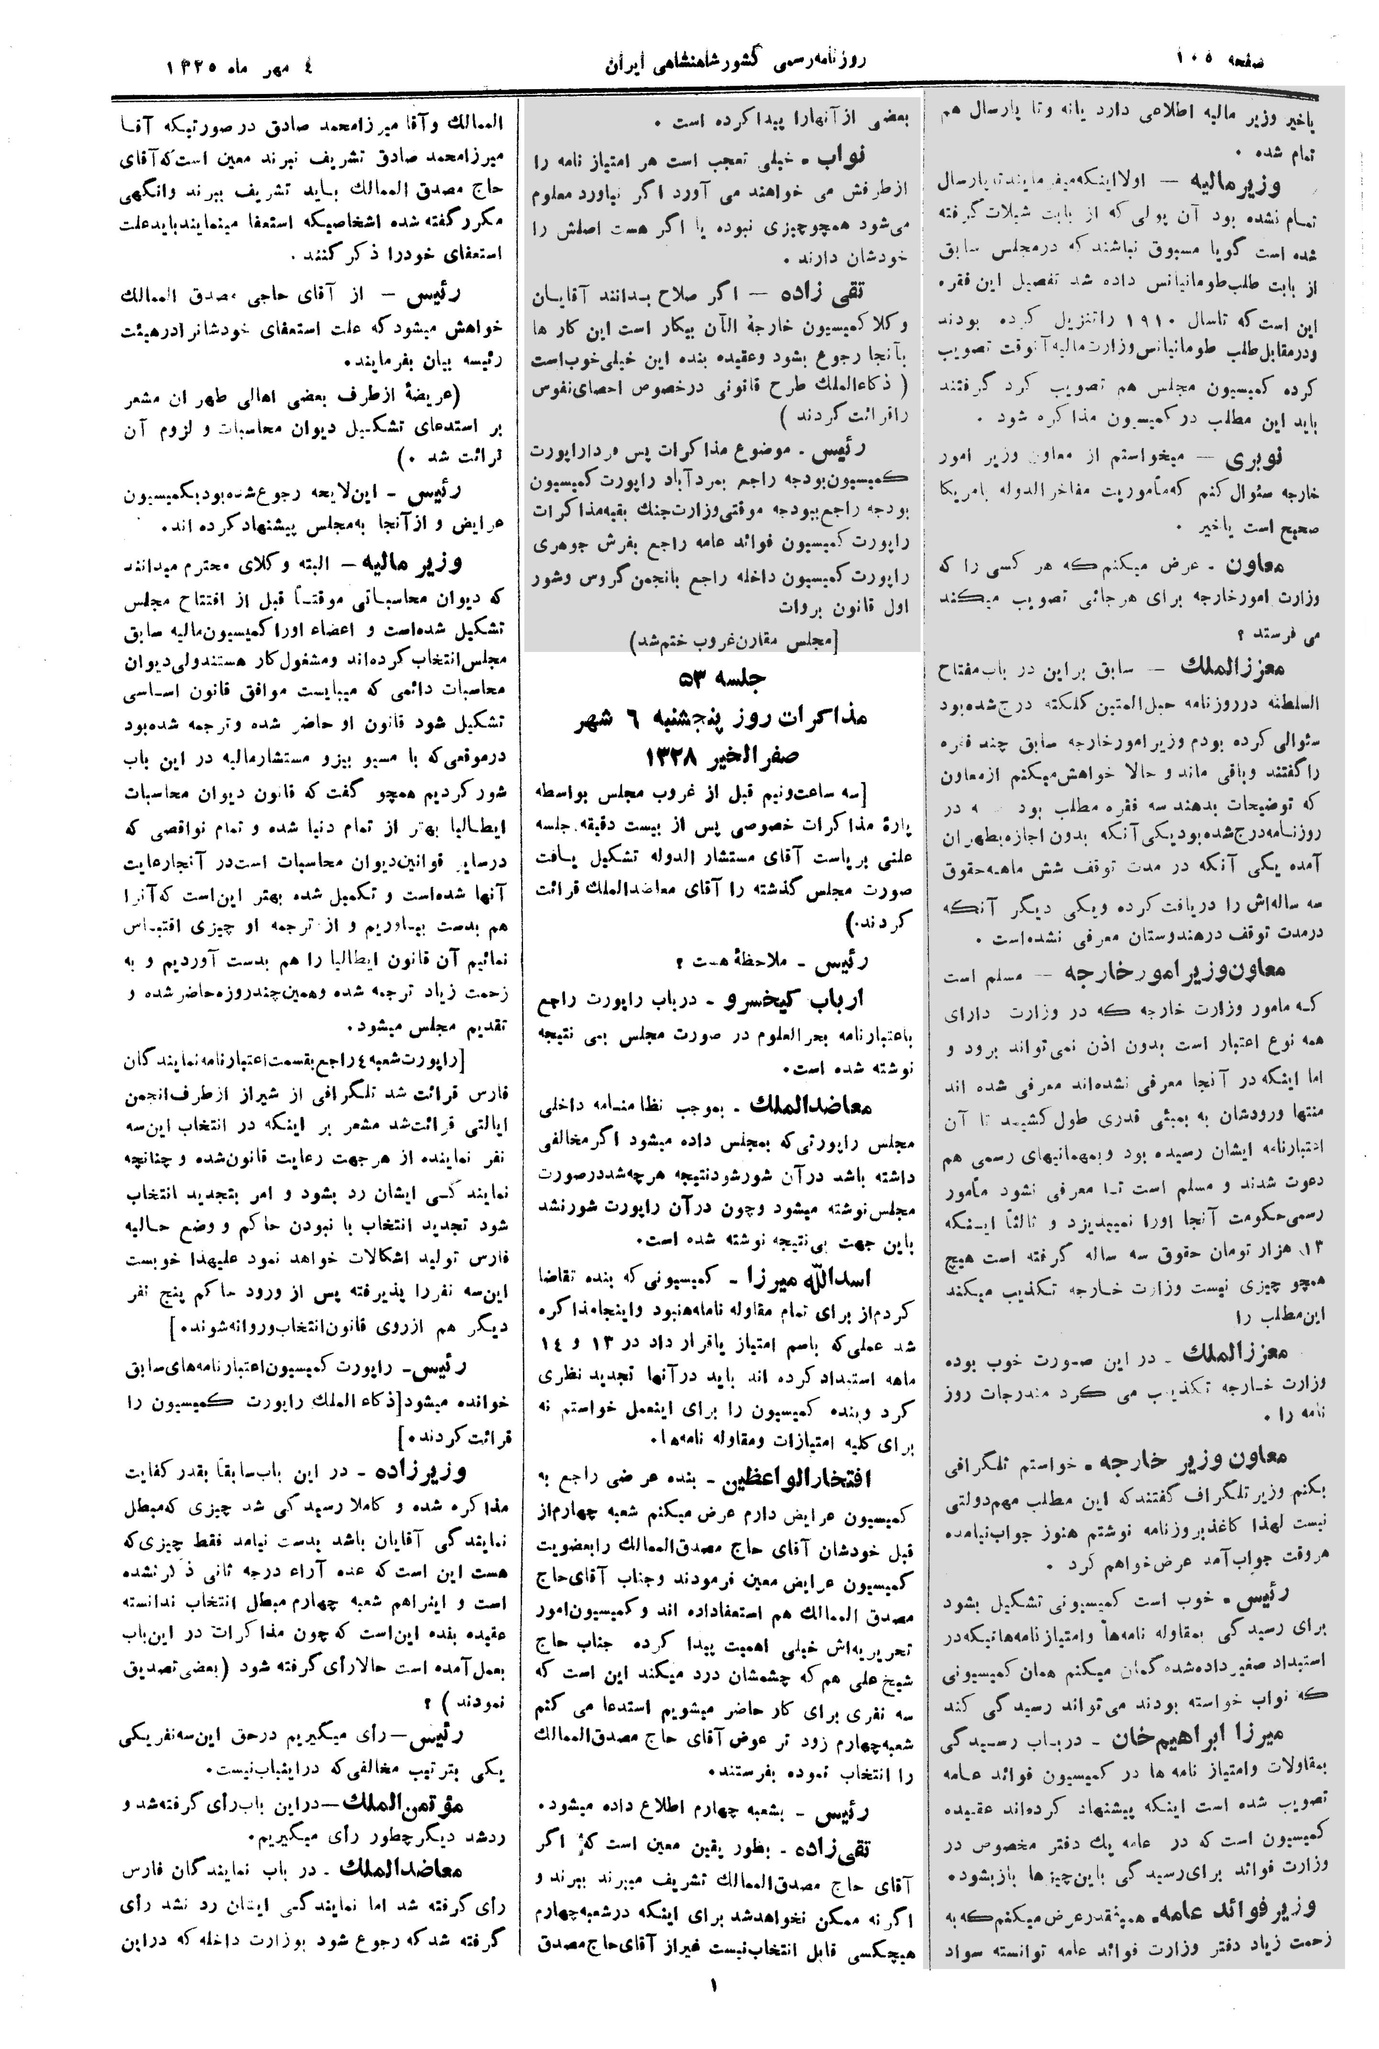 صفحه ۱۰۵
روزنامه رسمی کشور شاهنشاهی ایران
٤ مهر ماه ۱۳۲۵
یاخیر وزیر مالیه اطلاعی دارد یانه وتا پارسال هم
تمام شده .
وزیر مالیه — اولا اینکه میفرمایند تا پارسال
تمام نشده بود آن پولی که از بابت شیلات گرفته
شده است گویا مسبوق نباشند که درمجلس سابق
از بابت طلب طومانیانس داده شد تفصیل این فقره
این است که تاسال ۱۹۱۰ را تنزیل کرده بودند
ودرمقابل طلب طومانیانس وزارت مالیه آنوقت تصویب
کرده کمیسیون مجلس هم تصویب کرد گرفتند
باید این مطلب در کمیسیون مذاکره شود .
نوبری — میخواستم از معاون وزیر امور
خارجه سئوال کنم که مأموریت مفاخرالدوله بامریکا
صحیح است یاخیر .
معاون ـ عرض میکنم که هر کسی را که
وزارت امورخارجه برای هرجائی تصویب میکند
می فرستد ؟
معززالملک — سابق براین در باب مفتاح
السلطنه درروزنامه حبل المتین کلکته درج شده بود
سئوالی کرده بودم وزیر امورخارجه سابق چند فقره
را گفتند وباقی ماند و حالا خواهش میکنم ازمعاون
که توضیحات بدهند سه فقره مطلب بود که در
روزنامه درج شده بود یکی آنکه بدون اجازه بطهران
آمده یکی آنکه در مدت توقف شش ماهه حقوق
سه ساله‌اش را دریافت کرده ویکی دیگر آنکه
درمدت توقف درهندوستان معرفی نشده است .
معاون وزیر امور خارجه — مسلم است
که مامور وزارت خارجه که در وزارت دارای
همه نوع اعتبار است بدون اذن نمی‌تواند برود و
اما اینکه در آنجا معرفی نشده‌اند معرفی شده اند
منتها ورودشان به بمبئی قدری طول کشید تا آن
اعتبارنامه ایشان رسیده بود و بمهمانیهای رسمی هم
دعوت شدند و مسلم است تا معرفی نشود مأمور
رسمی حکومت آنجا اورا نمیپذیرد و ثالثاً اینکه
۱۳ هزار تومان حقوق سه ساله گرفته است هیچ
همچو چیزی نیست وزارت خارجه تکذیب میکند
این مطلب را
معززالملک ـ در این صورت خوب بوده
وزارت خارجه تکذیب می کرد مندرجات روز
نامه را .
معاون وزیر خارجه ـ خواستم تلگرافی
بکنم وزیر تلگراف گفتند که این مطلب مهم دولتی
نیست لهذا کاغذ بروزنامه نوشتم هنوز جواب نیامده
هروقت جواب آمد عرض خواهم کرد .
رئیس ـ خوب است کمیسیونی تشکیل بشود
برای رسیدگی بمقاوله نامه‌ها وامتیاز نامه‌هائیکه در
استبداد صغیر داده شده گمان میکنم همان کمیسیونی
که نواب خواسته بودند می‌تواند رسیدگی کند
میرزا ابراهیم خان ـ درباب رسیدگی
بمقاولات وامتیاز نامه ها در کمیسیون فوائد عامه
تصویب شده است اینکه پیشنهاد کرده‌اند عقیده
کمیسیون است که در عامه یک دفتر مخصوص در
وزارت فوائد برای رسیدگی باین چیزها بازبشود .
وزیر فوائد عامه ـ همینقدر عرض میکنم که به
زحمت زیاد دفتر وزارت فوائد عامه توانسته سواد
بعضی از آنهارا پیدا کرده است .
نواب ـ خیلی تعجب است هر امتیاز نامه را
ازطرفش می خواهند می آورد اگر نیاورد معلوم
می‌شود همچو چیزی نبوده یا اگر هست اصلش را
خودشان دارند .
تقی زاده — اگر صلاح بدانند آقایان
وکلا کمیسیون خارجهٔ الآن بیکار است این کار ها
بآنجا رجوع بشود وعقیده بنده این خیلی خوب است
( ذکاءالملک طرح قانونی درخصوص احصای نفوس
را قرائت کردند )
رئیس ـ موضوع مذاکرات پس فردا راپورت
کمیسیون بودجه راجع بمردآباد راپورت کمیسیون
بودجه راجع ببودجه موقتی وزارت جنگ بقیه مذاکرات
راپورت کمیسیون فوائد عامه راجع بفرش جوهری
راپورت کمیسیون داخله راجع بانجمن گروس وشور
اول قانون بروات
[مجلس مقارن غروب ختم شد)
جلسه ۵۳
مذاکرات روز پنجشنبه ٦ شهر
صفرالخیر ۱۳۲۸
[سه ساعت ونیم قبل از غروب مجلس بواسطه
پارهٔ مذاکرات خصوصی پس از بیست دقیقه جلسه
علنی بریاست آقای مستشار الدوله تشکیل یافت
صورت مجلس گذشته را آقای معاضدالملک قرائت
کردند.)
رئیس ـ ملاحظهٔ هست ؟
ارباب کیخسرو ـ درباب راپورت راجع
باعتبارنامه بحرالعلوم در صورت مجلس بی نتیجه
نوشته شده است.
معاضدالملک ـ بموجب نظامنامه داخلی
مجلس راپورتی که بمجلس داده میشود اگر مخالفی
داشته باشد درآن شور شود نتیجه هرچه شد درصورت
مجلس نوشته میشود وچون درآن راپورت شور نشد
باین جهت بی‌نتیجه نوشته شده است.
اسدالله میرزا ـ کمیسیونی که بنده تقاضا
کردم از برای تمام مقاوله نامه‌ها نبود واینجا مذاکره
شد عملی که باسم امتیاز یاقرار داد در ۱۳ و ۱٤
ماهه استبداد کرده اند باید درآنها تجدید نظری
کرد وبنده کمیسیون را برای اینعمل خواستم نه
برای کلیه امتیازات ومقاوله نامه‌ها.
افتخارالواعظین ـ بنده عرضی راجع به
کمیسیون عرایض دارم عرض میکنم شعبه چهارم از
قبل خودشان آقای حاج مصدق الممالک را بعضویت
کمیسیون عرایض معین فرمودند وجناب آقای حاج
مصدق الممالک هم استعفا داده اند و کمیسیون امور
تحریریه‌اش خیلی اهمیت پیدا کرده جناب حاج
شیخ علی هم که چشمشان درد میکند این است که
سه نفری برای کار حاضر میشویم استدعا می کنم
شعبه چهارم زود تر عوض آقای حاج مصدق الممالک
را انتخاب نموده بفرستند.
رئیس ـ بشعبه چهارم اطلاع داده میشود.
تقی زاده ـ بطور یقین معین است که اگر
آقای حاج مصدق الممالک تشریف میبرند ببرند و
اگر نه ممکن نخواهد شد برای اینکه درشعبه چهارم
هیچکسی قابل انتخاب نیست غیراز آقای حاج مصدق
الممالک وآقا میرزا محمد صادق در صورتیکه آقا
میرزا محمد صادق تشریف نبرند معین است که آقای
حاج مصدق الممالک باید تشریف ببرند وانگهی
مکرر گفته شده اشخاصیکه استعفا مینمایند باید علت
استعفای خودرا ذکر کنند .
رئیس — از آقای حاجی مصدق الممالک
خواهش میشود که علت استعفای خودشانرا درهیئت
رئیسه بیان بفرمایند.
(عریضهٔ ازطرف بعضی اهالی طهران مشعر
بر استدعای تشکیل دیوان محاسبات و لزوم آن
قرائت شد .)
رئیس ـ این لایحه رجوع شده بود بکمیسیون
عرایض و از آنجا به مجلس پیشنهاد کرده اند.
وزیر مالیه — البته وکلای محترم میدانند
که دیوان محاسباتی موقتاً قبل از افتتاح مجلس
تشکیل شده است و اعضاء اورا کمیسیون مالیه سابق
مجلس انتخاب کرده‌اند ومشغول کار هستند ولی دیوان
محاسبات دائمی که میبایست موافق قانون اساسی
تشکیل شود قانون او حاضر شده و ترجمه شده بود
درموقعی که با مسیو بیزو مستشار مالیه در این باب
شور کردیم همچو گفت که قانون دیوان محاسبات
ایطالیا بهتر از تمام دنیا شده و تمام نواقصی که
درسایر قوانین دیوان محاسبات است در آنجا رعایت
آنها شده است و تکمیل شده بهتر این است که آنرا
هم بدست بیاوریم و از ترجمه او چیزی اقتباس
نمائیم آن قانون ایطالیا را هم بدست آوردیم و به
زحمت زیاد ترجمه شده وهمین چند روزه حاضر شده و
تقدیم مجلس میشود.
[راپورت شعبه ٤ راجع بقسمت اعتبارنامه نمایندگان
فارس قرائت شد تلگرافی از شیراز ازطرف انجمن
ایالتی قرائت شد مشعر بر اینکه در انتخاب این سه
نفر نماینده از هرجهت رعایت قانون شده و چنانچه
نمایندگی ایشان رد بشود و امر بتجدید انتخاب
شود تجدید انتخاب با نبودن حاکم و وضع حالیه
فارس تولید اشکالات خواهد نمود علیهذا خوبست
این سه نفر را پذیرفته پس از ورود حاکم پنج نفر
دیگر هم ازروی قانون انتخاب و روانه شوند.]
رئیس ـ راپورت کمیسیون اعتبارنامه‌های سابق
خوانده میشود[ذکاءالملک راپورت کمیسیون را
قرائت کردند.]
وزیرزاده ـ در این باب سابقاً بقدر کفایت
مذاکره شده و کاملا رسیدگی شد چیزی که مبطل
نمایندگی آقایان باشد بدست نیامد فقط چیزی که
هست این است که عده آراء درجه ثانی ذکر نشده
است و اینراهم شعبه چهارم مبطل انتخاب ندانسته
عقیده بنده این است که چون مذاکرات در این باب
بعمل آمده است حالا رأی گرفته شود (بعضی تصدیق
نمودند ) ؟
رئیس — رأی میگیریم درحق این سه نفر یکی
یکی بترتیب مخالفی که در اینباب نیست.
مؤتمن الملک — دراین باب رأی گرفته شد و
رد شد دیگر چطور رأی میگیریم.
معاضدالملک ـ در باب نمایندگان فارس
رأی گرفته شد اما نمایندگی ایشان رد نشد رأی
گرفته شد که رجوع شود بوزارت داخله که دراین
۱